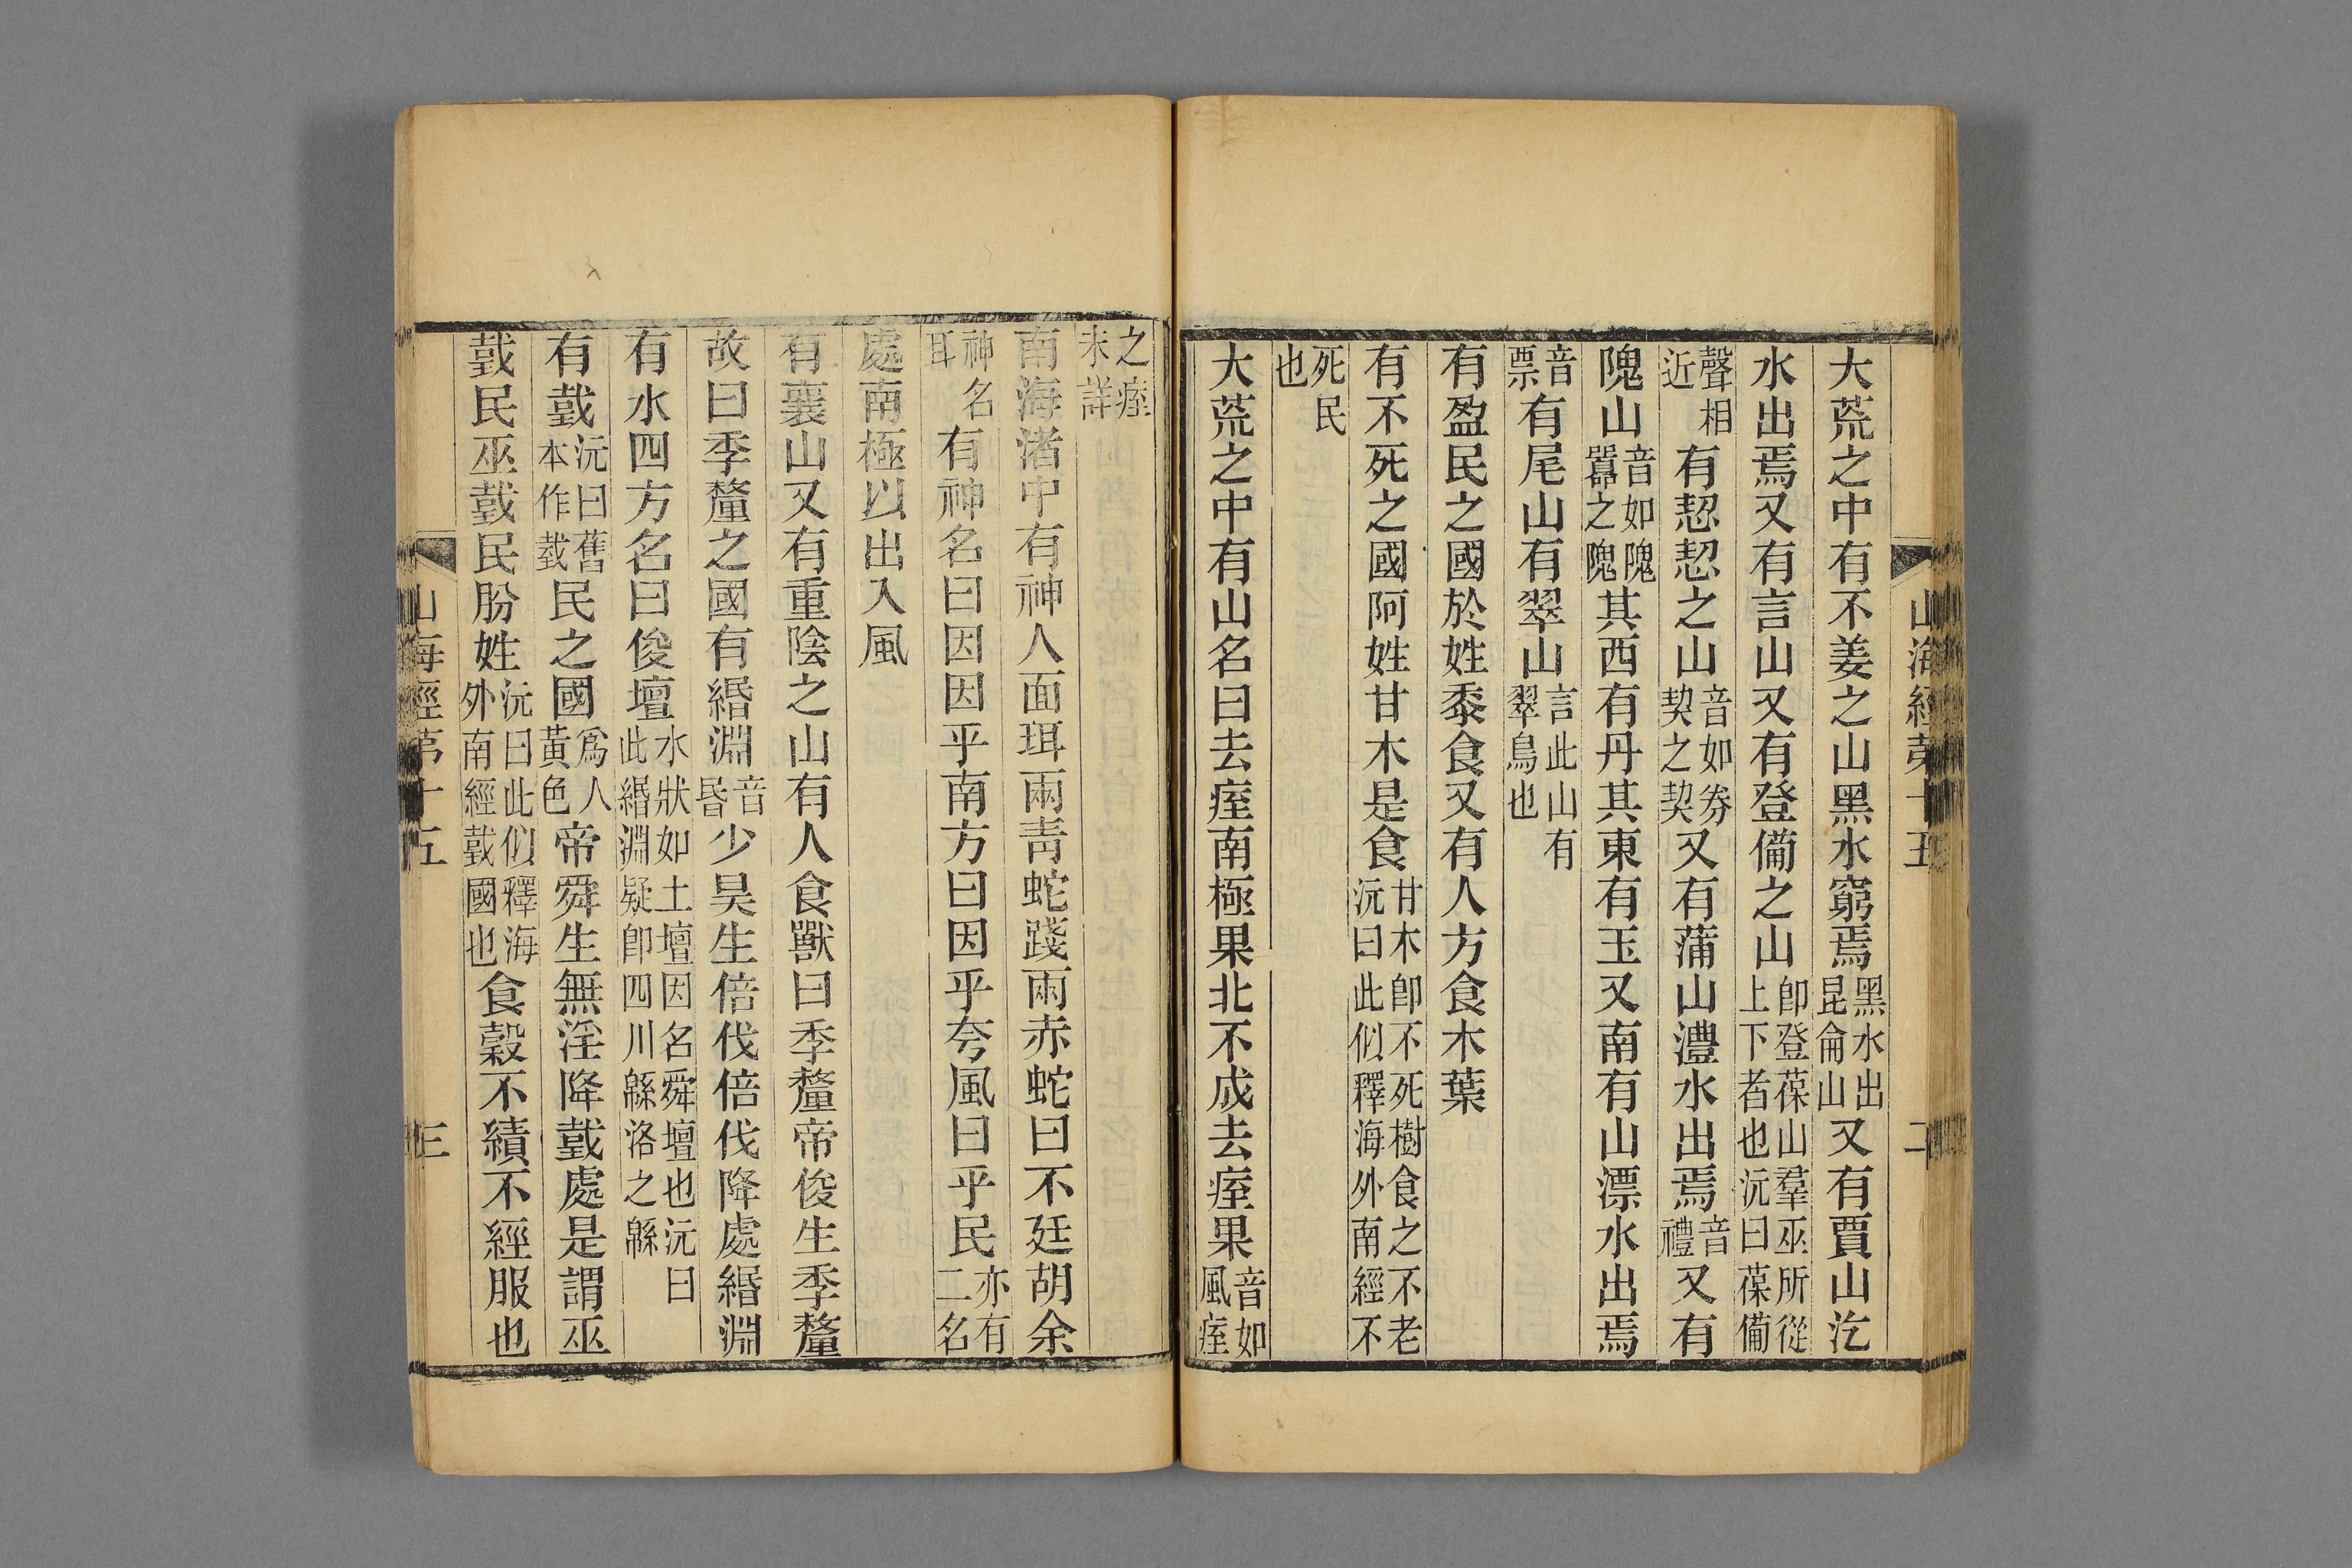 山海經第十五
二
大荒之中有不姜之山黑水窮焉黑水出昆侖山又有賈山汔
水出焉又有言山又有登備之山卽登葆山羣巫所從上下者也沅曰葆備
聲相近有恝恝之山音如券契之契又有蒲山澧水出焉音禮又有
隗山音如隗囂之隗其西有丹其東有玉又南有山漂水出焉
音票有尾山有翠山言此山有翠鳥也
有盈民之國於姓黍食又有人方食木葉
有不死之國阿姓甘木是食甘木卽不死樹食之不老沅曰此似釋海外南經不
死民也
大荒之中有山名曰去痓南極果北不成去痓果音如風痓
之痓未詳
南海渚中有神人面珥兩靑蛇踐兩赤蛇曰不廷胡余
神名耳有神名曰因因乎南方曰因乎夸風曰乎民亦有二名
處南極以出入風
有襄山又有重陰之山有人食獸曰季釐帝俊生季釐
故曰季釐之國有緡淵音昬少昊生倍伐倍伐降處緡淵
有水四方名曰俊壇水狀如土壇因名舜壇也沅曰此緡淵疑卽四川緜洛之緜
有臷沅曰舊本作臷民之國爲人黃色帝舜生無淫降臷處是謂巫
臷民巫臷民朌姓沅曰此似釋海外南經臷國也食穀不績不經服也
山海經第十五
三